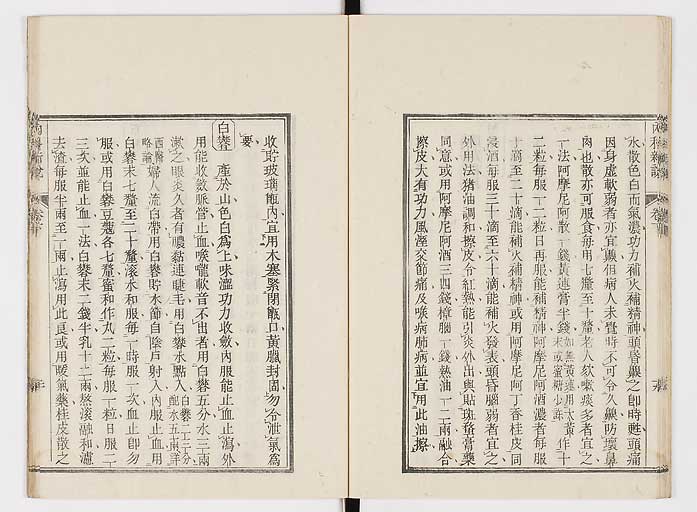 水散色白而氣濃功力補火補精神頭昏嗅之卽時甦頭痛
因身虛軟弱者亦宜嗅但病人未覺時不可令久嗅防壞鼻
肉也散亦可服食每用七釐至十釐老人欬嗽痰多者宜之
一法阿摩尼阿散一錢黃連膏半錢如無黃連用大黃末或蜜糖少許作十
二粒每服一二粒日再服能補精神阿摩尼阿酒濃者每服
十滴至二十滴能補火補精神或用阿摩尼阿丁香桂皮同
浸酒每服三十滴至六十滴能補火發表頭昏腦弱者宜之
外用法猪油調和擦皮令紅熱能引炎外出與貼斑蝥膏藥
同意或用阿摩尼阿酒三四錢樟腦一錢熱油一二兩融合
擦皮大有功力風溼交節痛及喉病肺病並宜用此油擦
收貯玻瓈瓶內宜用木塞緊閉瓶口黃臘封固勿令泄氣爲
要
白礬 產於山色白爲上味澀功力收斂內服能止血止瀉外
用能收斂脈管止血喉嚨軟音不出者用白礬五分水三兩
漱之眼炎久者有膿黏連睫毛用白礬水點入白礬二三分配水五兩詳
西醫略論婦人流白帶用白礬貯水節自陰戶射入內服止血用
白礬末七釐至二十釐滾水和服每一時服一次血止卽勿
服或用白礬豆蔻各七釐蜜和作丸二粒每服一粒日服二
三次並能止血一法白礬末二錢牛乳十二兩熬滾融和濾
去渣每服半兩至一兩止瀉用此良或用暖氣藥桂皮散之